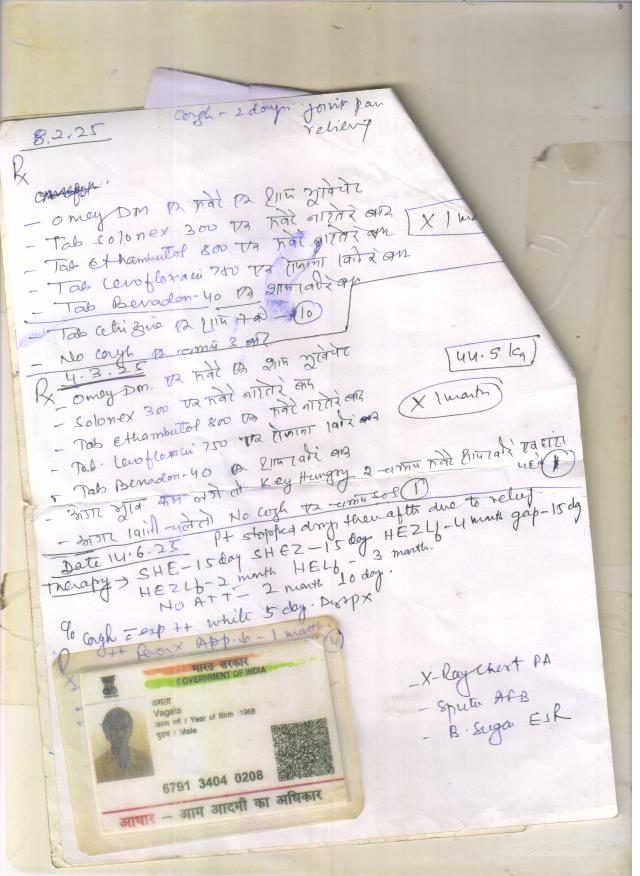 Cough - 2 days. Joint pain
relieving
8.2.25
Rx
- Omey Dm एक सवेरे एक शाम भूखे पेट
- Tab Solonex 300 एक सवेरे नाश्ते के बाद
- Tab Ethambutol 800 एक सवेरे नाश्ते के बाद
X 1 m
- Tab Levofloxacin 750 एक रोजाना खाने के बाद
- Tab Benadon-40 एक शाम खाने के बाद
- Tab Cetrizine एक शाम 7 बजे 10
- No Cough
4.3.25
Rx
44.5 kg
- Omey Dm. एक सवेरे एक शाम भूखे पेट
- Solonex 300 एक सवेरे नाश्ते के बाद
X 1 month
- Tab Ethambutol 800 एक सवेरे नाश्ते के बाद
- Tab. Levofloxacin 750 एक रोजाना खाने के बाद
- Tab Benadon-40 एक शाम खाने के बाद
- अगर भूख कम लगे तो Key Hungry 2 चम्मच सवेरे शाम खाने एक घंटा पहले 1
- अगर खांसी चले तो No Cough एक चम्मच SOS 1
Date 14.6.25 Pt stopped drug thereafter due to relief
Therapy → SHE-15 day SHEZ-15 day HEZLb-4 month gap-15 day
HEZLb-2 month HELb - 3 month.
NO ATT - 2 month 10 day.
C/o Cough = exp ++ white 5 day.
++ fever X App. ↓ - 1 month
- X-Ray Chest PA
- Sputum AFB
- B. Sugar ESR
भारत सरकार
GOVERNMENT OF INDIA
वगता
Vagata
जन्म वर्ष / Year of Birth :1968
पुरुष / Male
6791 3404 0208
आधार - आम आदमी का अधिकार